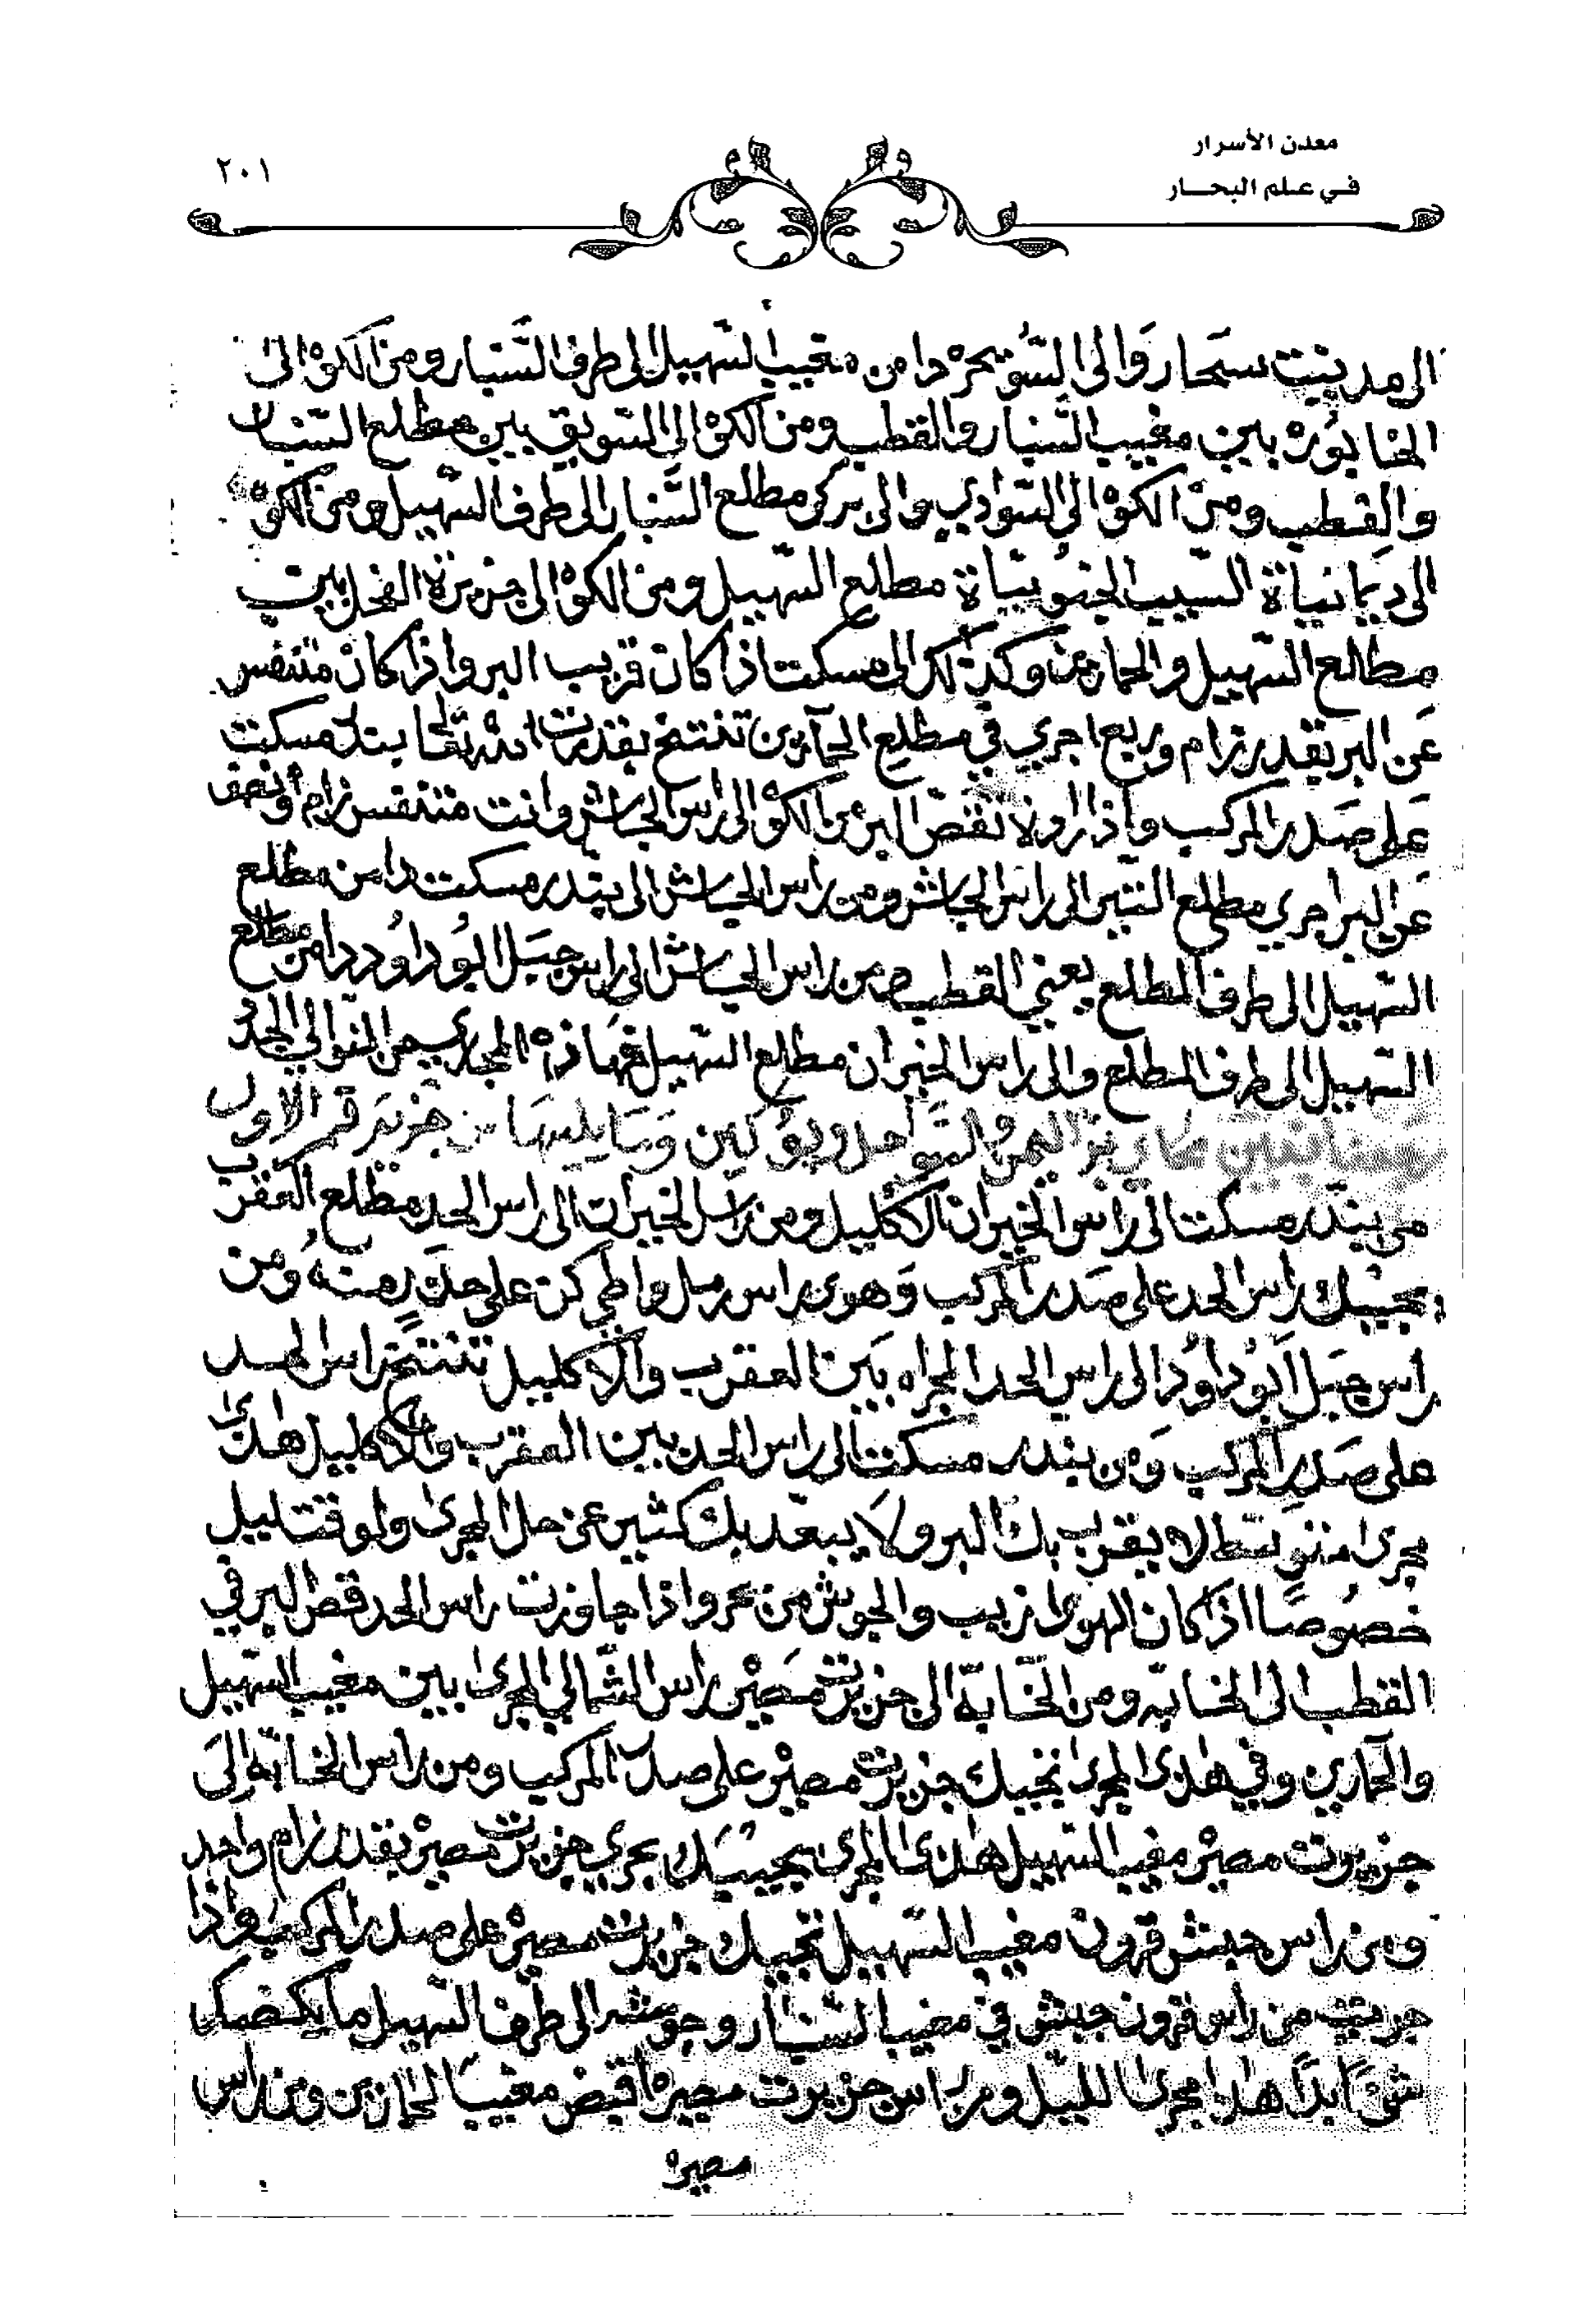 معدن الأسرار
في علم البحار
٢٠١
الى مدينت سحار والى السويحره دا من مغيب السهيل الى طرف السنبار ومن الكوه الى
الخابوره بين مغيب السنبار والقطب ومن الكوه الى السويق بين مطلع السنبار
والقطب ومن الكوه الى السوادي والى بركى مطلع السنبار الى طرف السهيل ومن الكوه
الى ديمانياة السيب الجنوبياة مطلع السهيل ومن الكوه الى جزيرة الفحل بين
مطالع السهيل والحمارين وكذلك الى مسكت اذا كان قريب البر واذا كان متنفس
عن البر بقدر زام وربع اجري في مطلع الحمارين تنتخ بقدرت الله تعالى بندر مسكت
على صدر المركب واذا اردة تقض البر من الكوه الى راس الحياش وانت متنفس زام ونصف
عن البر اجري مطلع التير الى راس الحياش ومن راس الحياش الى بندر مسكت دا من مطلع
السهيل الى طرف المطلع يعني القطب ومن راس الحياش الى راس جبل ابو داود دا من مطلع
السهيل الى طرف المطلع والى راس الخيران مطلع السهيل فهاذه المجاري من النوالي الحد
بر اليمن والسواحل ويوكين وسايليها من جزيرة قمر الاول
من بندر مسكت الى راس الخيران الاكليل ومن راس الخيران الى راس الحد مطلع العقرب
يجيبك راس الحد على صدر المركب وهوى راس رمل واطي كن على حذر منه ومن
راس جبل ابو داود الى راس الحد المجراه بين العقرب والاكليل تنتخ راس الحد
على صدر المركب ومن بندر مسكت الى راس الحد بين العقرب والاكليل هذى
مجرى متوسط لا يقرب بك البر ولا يبعد بك كثير عن حل المجرى ولو قت ليل
خصوصا اذا كان الهوى ازيب والجوش من بحر واذا جاوزت راس الحد قض البر في
القطب الى الخابه ومن الخابة الى جزيرت مصيره راس الشمالي المجرى بين مغيب السهيل
والحمارين وفي هذى المجرى تجيبك جزيرت مصيره على صدر المركب ومن راس الخابة الى
جزيرت مصيره مغيب السهيل هذى المجرى يجيبك بحري جزيرت مصيره بقدر زام واحد
ومن راس حبش قرون مغيب السهيل تجيبك جزيرت مصيره على صدر المركب واذا
جريت من راس قرون حبش في مغيب السنبار وجوشه الى طرف السهيل ما يكضك
شئ ابدا هذا مجرى الليل ومن راس جزيرت مصيره اقبض مغيب الحمارين ومن راس
مصيره